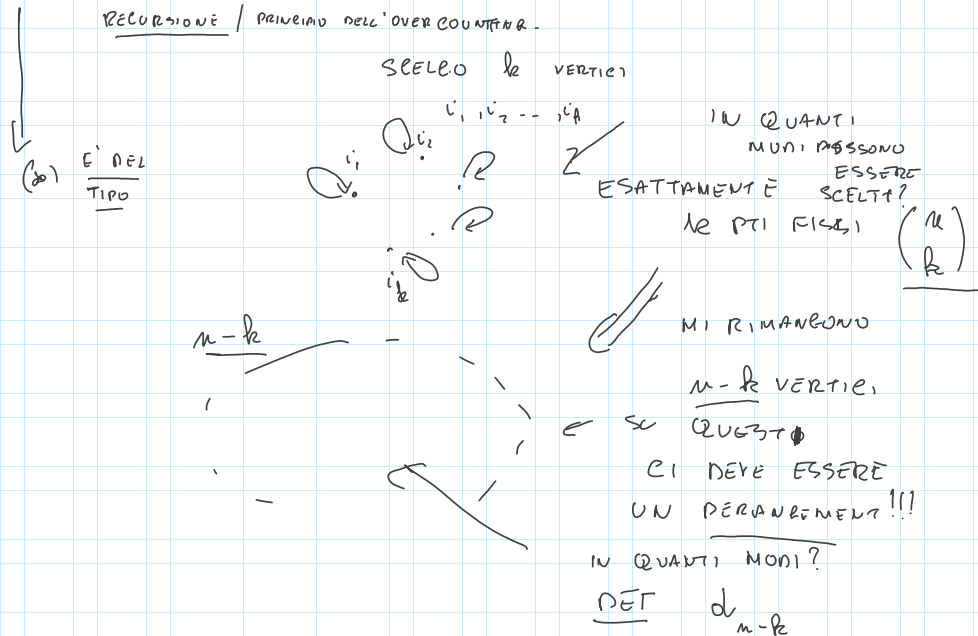 RECURSIONE / PRINCIPIO DELL'OVERCOUNTING.
SCELGO k VERTICI
i₁, i₂ ..., iₖ
(∞) E' DEL TIPO
i₁
i₂
iₖ
IN QUANTI
MODI POSSONO
ESSERE
SCELTI?
ESATTAMENTE
k PTI FISSI
(n k)
n-k
MI RIMANGONO
n-k VERTICI
SU QUESTI
CI DEVE ESSERE
UN DERANGEMENT!!!
IN QUANTI MODI?
DEF dₙ₋ₖ